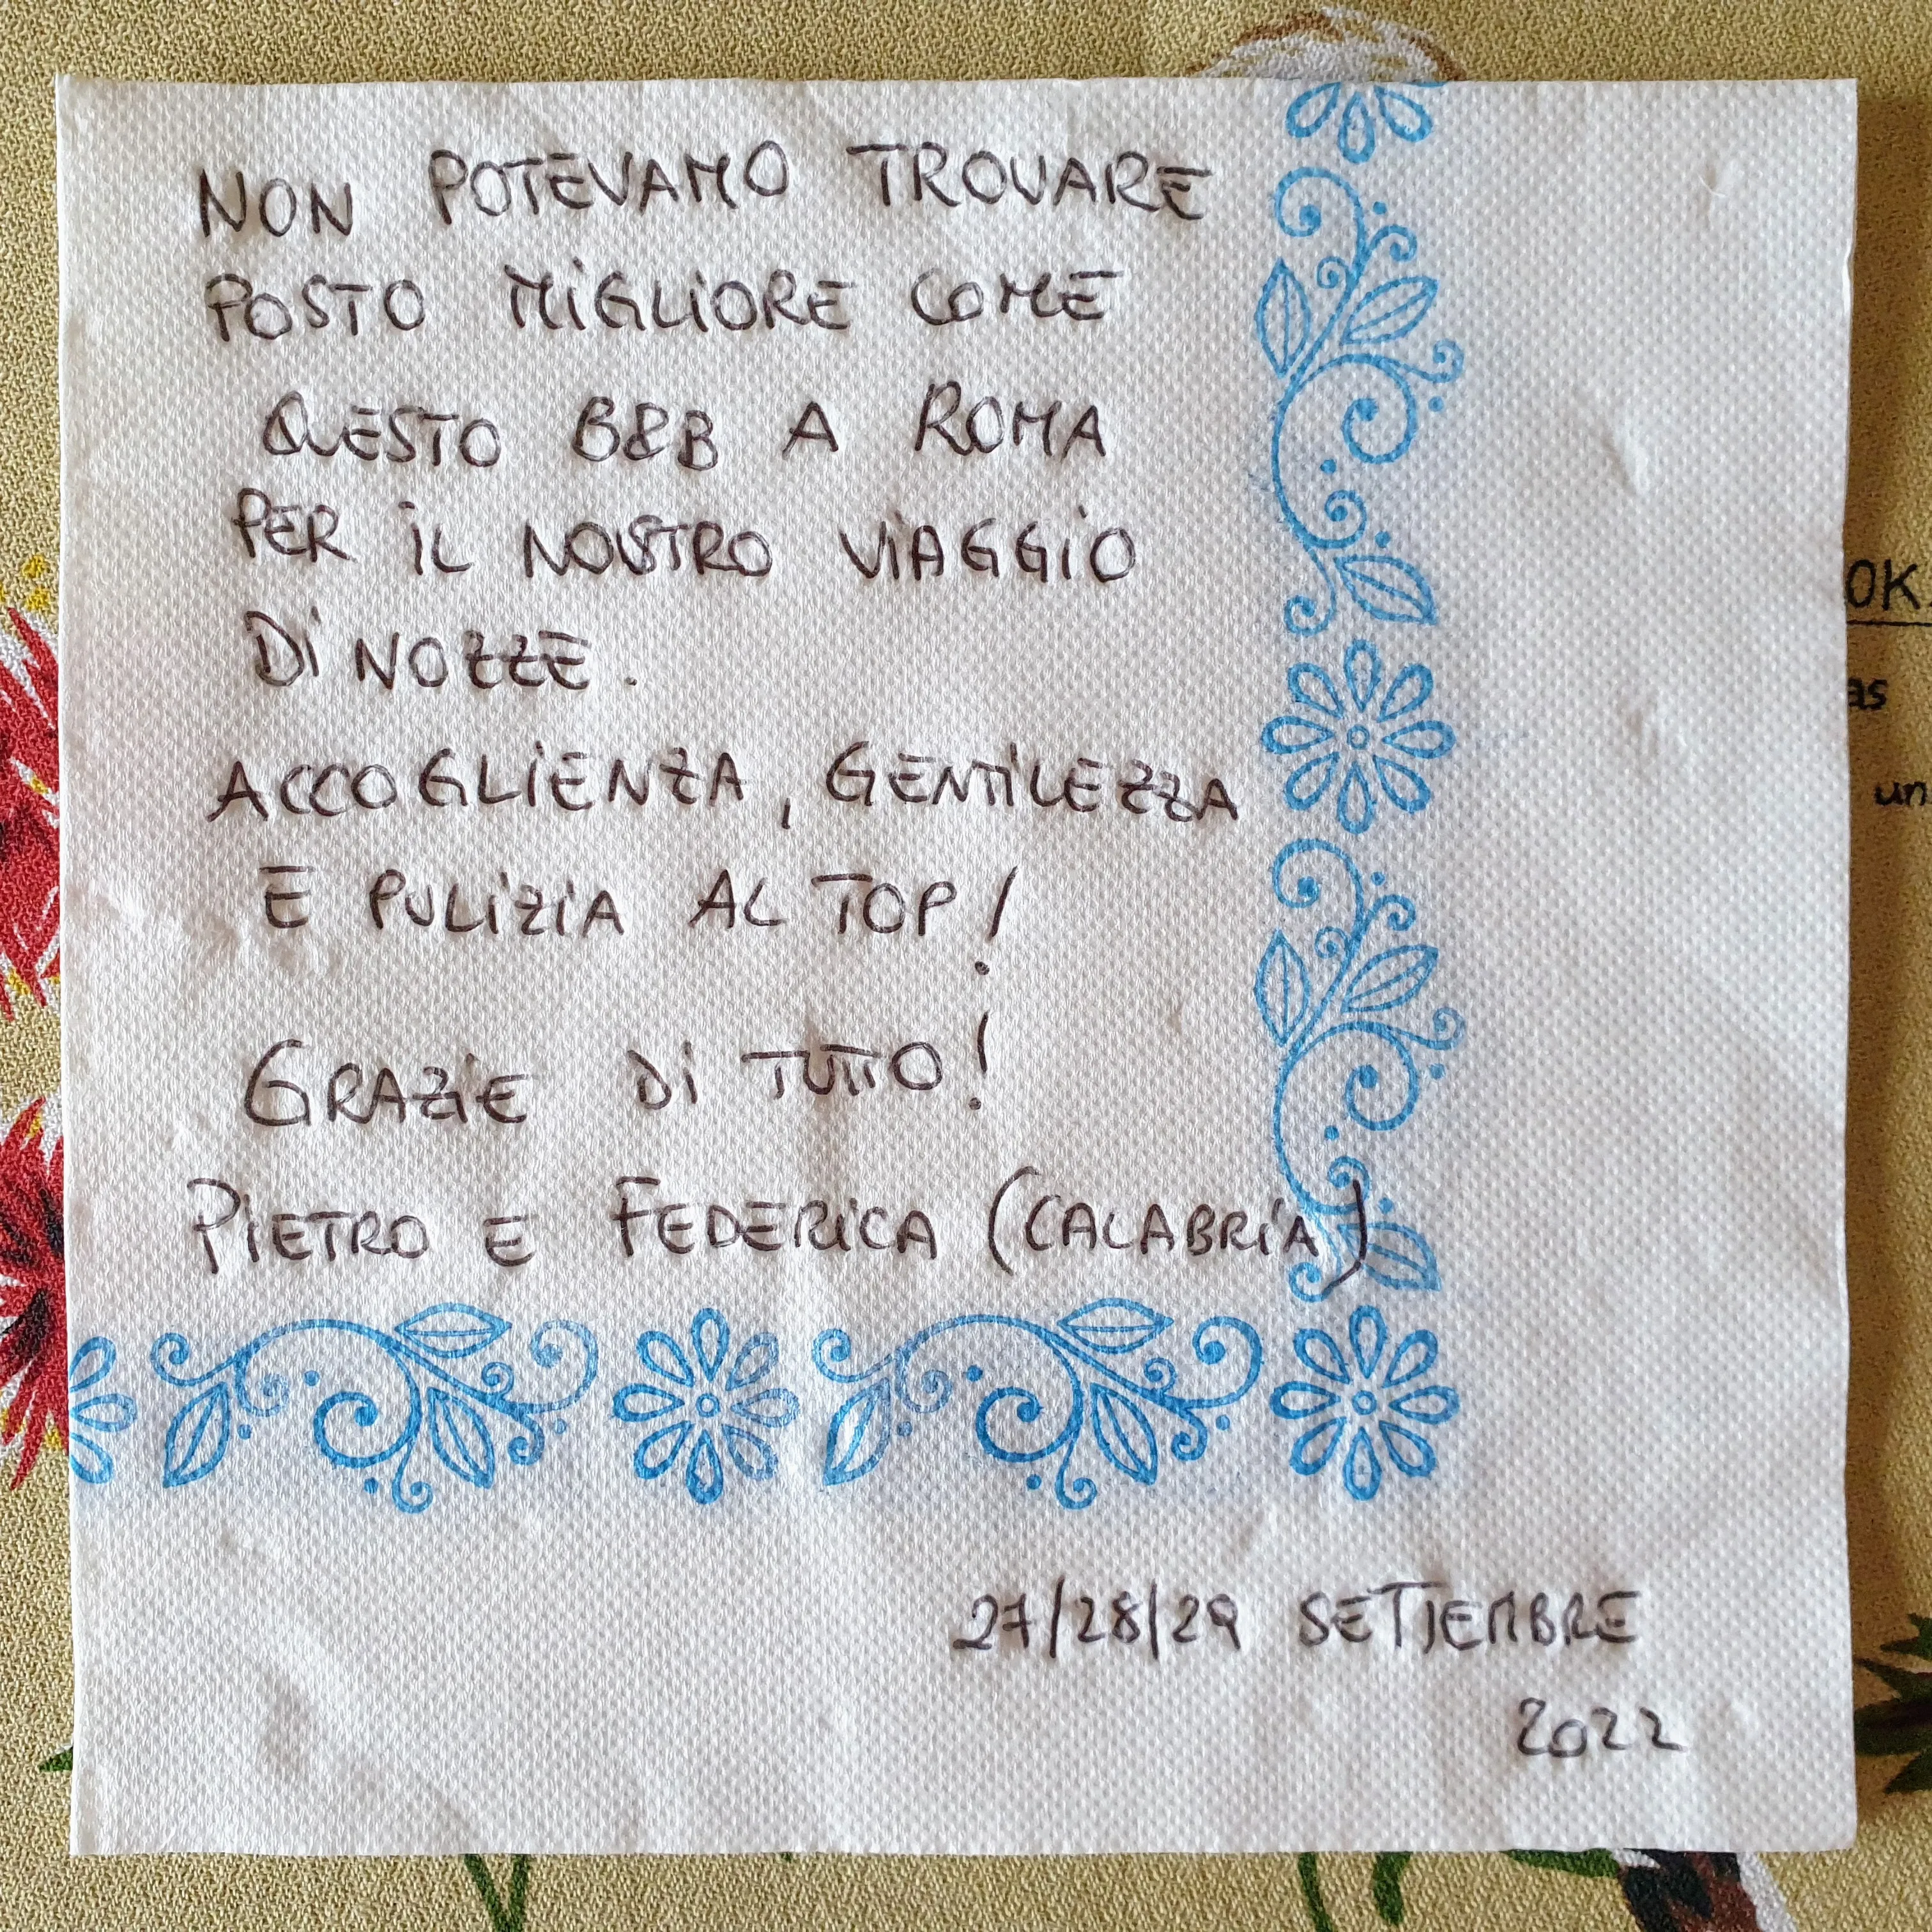 NON POTEVAMO TROVARE
POSTO MIGLIORE COME
QUESTO B&B A ROMA
PER IL NOSTRO VIAGGIO
DI NOZZE.
ACCOGLIENZA, GENTILEZZA
E PULIZIA AL TOP!
GRAZIE DI TUTTO!
PIETRO E FEDERICA (CALABRIA)
27/28/29 SETTEMBRE
2022
OK.
as
un